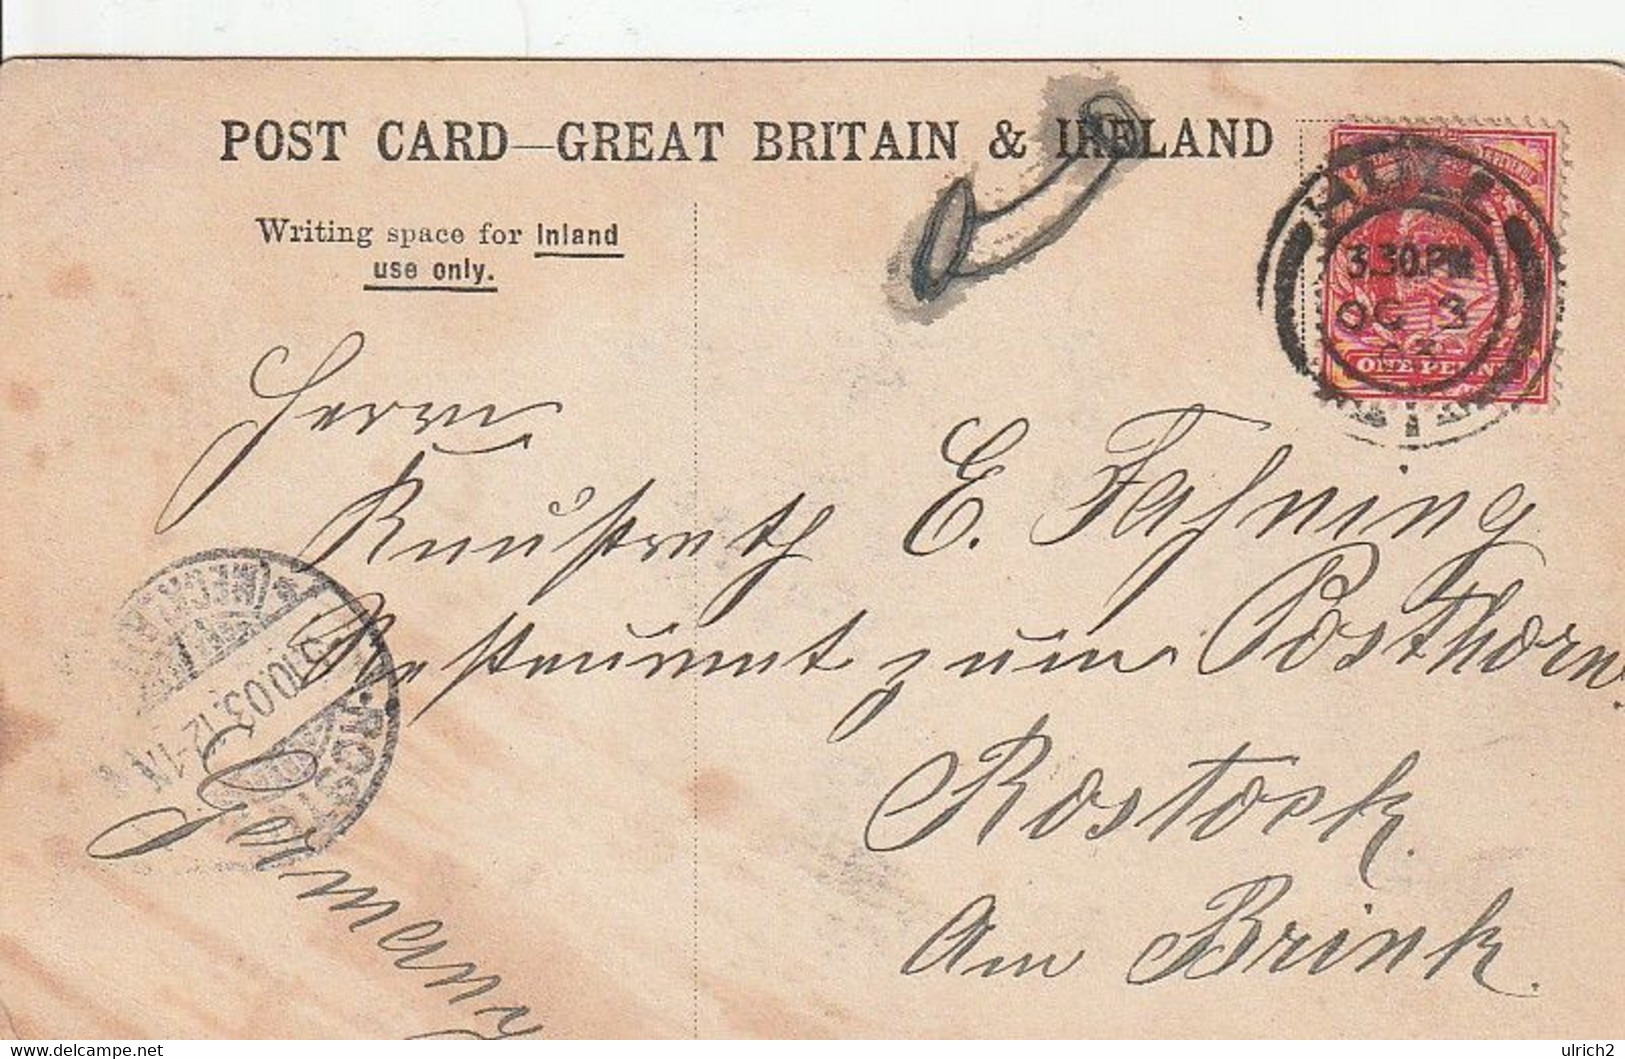 POST CARD—GREAT BRITAIN & IRELAND
Writing space for Inland
use only.
3.30.PM
OC 3
03
ONE PENNY
Herrn
E. Fahning
Restaurant zum Posthorn.
Rostock.
Am Brink.
Germany
10.03.12-1N
ROST
ulrich2
delcampe.net